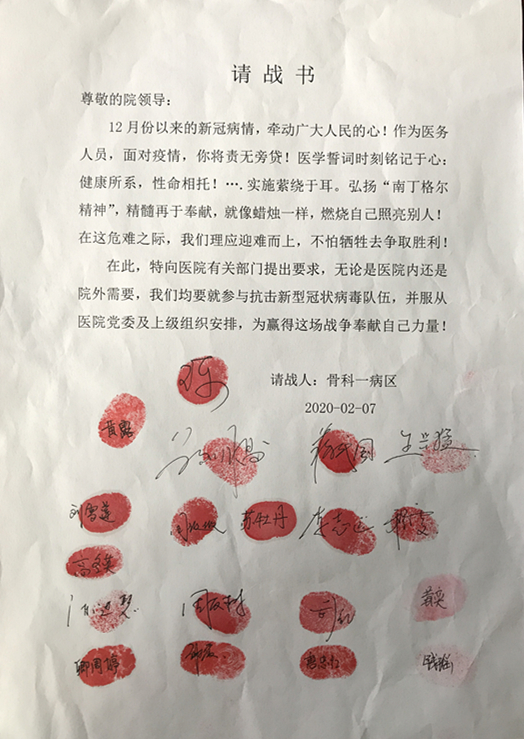 请战书
尊敬的院领导：
12月份以来的新冠病情，牵动广大人民的心！作为医务
人员，面对疫情，你将责无旁贷！医学誓词时刻铭记于心：
健康所系，性命相托！….实施萦绕于耳。弘扬“南丁格尔
精神”，精髓再于奉献，就像蜡烛一样，燃烧自己照亮别人！
在这危难之际，我们理应迎难而上，不怕牺牲去争取胜利！
在此，特向医院有关部门提出要求，无论是医院内还是
院外需要，我们均要就参与抗击新型冠状病毒队伍，并服从
医院党委及上级组织安排，为赢得这场战争奉献自己力量！
请战人：骨科一病区
2020-02-07
刘雪莲 苏牡丹 李志远